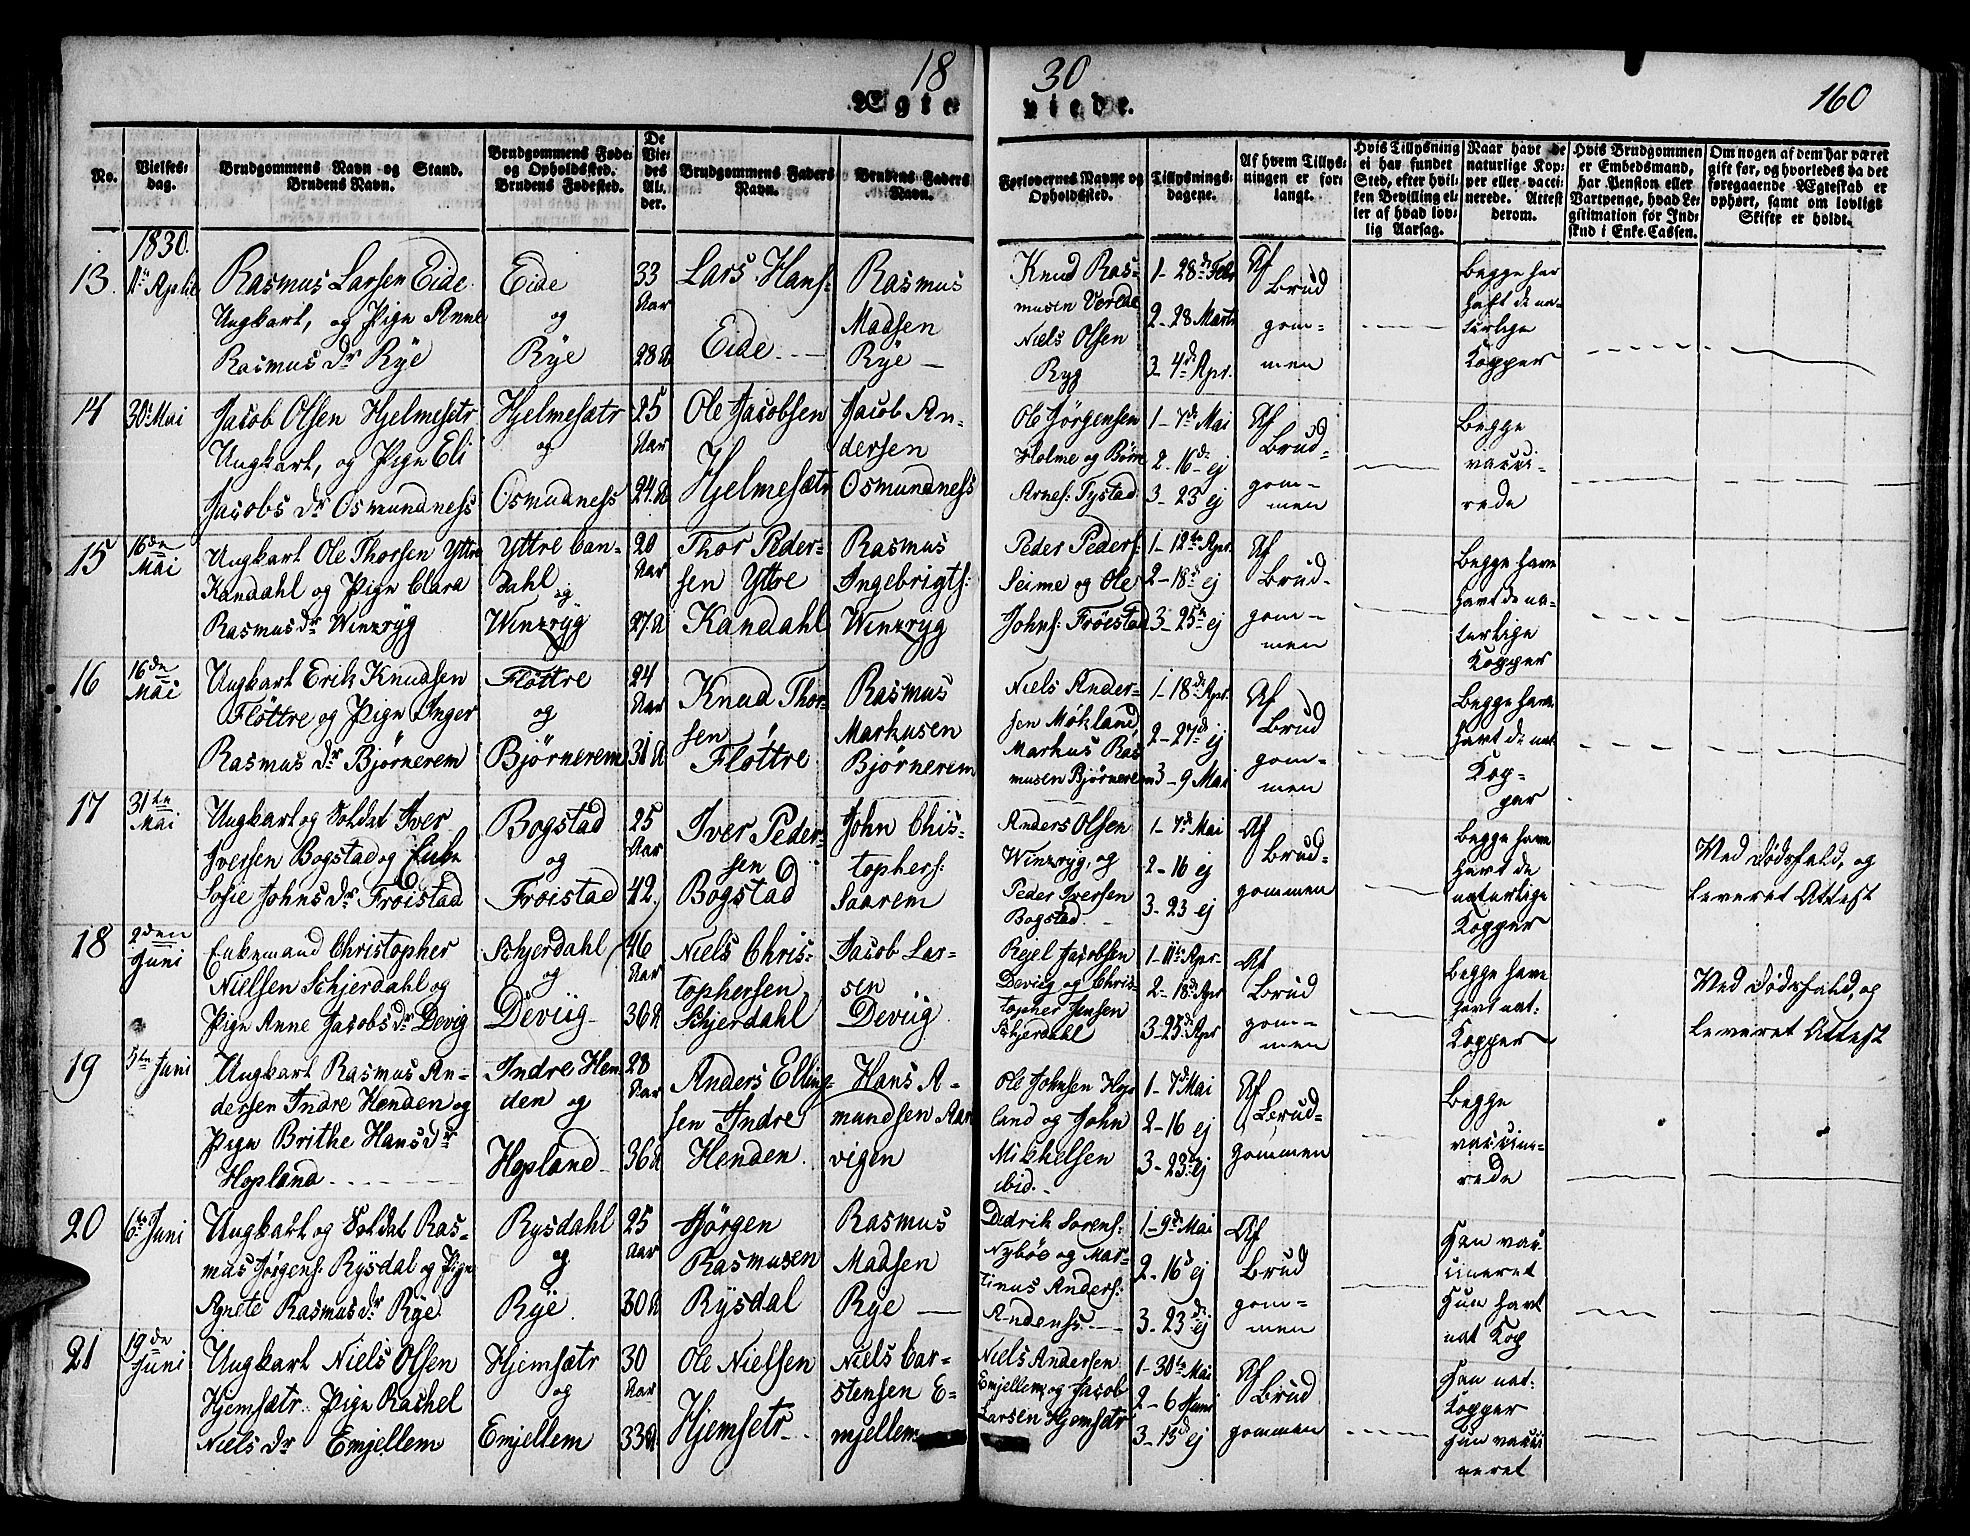 18 30
160
Ægte viede.
No.
Vielses-
dag.
Brudgommens Navn og Stand.
Brudens Navn.
Brudgommens Føde-
og Opholdssted.
Brudens Fødested.
De
Vie-
des
Al-
der.
Brudgommens Faders
Navn.
Brudens Faders
Navn.
Forlovernes Navne og
Opholdssted.
Tillysnings-
dagene.
Af hvem Tillys-
ningen er for-
langt.
Hvis Tillysning
ei har fundet
Sted, efter hvil-
ken Bevilling el-
ler af hvad lov-
lig Aarsag.
Naar havt de
naturlige Kop-
per eller vacci-
nerede. Attest
derom.
Hvis Brudgommen
er Embedsmand,
har Pension eller
Vartpenge, hvad Le-
gitimation for Ind-
skud i Enke-Cassen.
Om nogen af dem har været
gift før, og hvorledes da det
foregaaende Ægteskab er
ophørt, samt om lovligt
Skifte er holdt.
1830.
13. 11te Aprlie
Rasmus Larsen Eide
Ungkarl, og Pige Anne
Rasmus dr Rye
Eide
og
Rye
33
Aar
28 A
Lars Hans-
Eide
Rasmus
Madsen
Rye
Knud Ras-
musen Verede
Niels Olsen
Ryg
1- 28de Febr
2- 28 Marts
3- 4de Apr.
Af
Brud
gom-
men
Begge har
haft de na-
turlige
Kopper
14 30te Mai
Jacob Olsen Hjelmesetr
Ungkarl, og Pige Eli
Jacobs dr Osmundness
Hjelmesætr
og
Osmudness
25
Aar
24. A
Ole Jacobsen
Hjelmesætr
Jacob An-
dersen
Osmundness
Ole Jørgensen
Holme og Børre
Arnes: Tystad
1- 7de Mai
2- 16de ej
3- 23 ej
Af
Brud-
gom-
men
Begge
vacci-
rede
15 16de
Mai
Ungkarl Ole Thorsen Yttre
Kandahl og Pige Clara
Rasmus dr Winzryg
Yttre Can-
dahl
og
Winzryg
20
Aar
27 A
Thor Peder-
sen Yttre
Kandahl
Rasmus
Ingebrigts:
Winzryg
Peder Peders:
Seime og Ole
Johns: Frøistad
1- 12te Apr.
2- 18de ej
3- 25te ej
Af
Brud-
gom-
men
Begge have
havt de na-
turlige
Kopper
16 16de
Mai
Ungkarl Erik Knudsen
Fløttre og Pige Inger
Rasmus dr Bjørnerem
Fløttre
og
Bjørnerem
24
Aar
31 A
Knud Thor-
sen
Fløttre
Rasmus
Markusen
Bjørnerem
Niels Ander-
sen Møkland
Markus Ras
musen Bjørnerem
1- 18de Apr.
2- 27de ej
3- 9 Mai
Af
Brud
gom-
men
Begge have
havt de nat
Kop-
per
17 31te
Mai
Ungkarl og Soldat Iver
Iversen Bogstad og Enke
Sofie Johns dr Frøistad
Bogstad
og
Frøistad
25
Aar
42.
Iver Peder-
sen
Bogstad
John Chis-
tophers:
Saarem
Anders Olsen
Winzryg, og
Peder Iversen
Bogstad
1- 7de Mai
2- 16 ej
3- 23 ej
Af
Brud-
gommen
Begge have
havt de
naturlige
Kopper
Ved Dødsfald, og
leveret Attest
18 2den
Juni
Enkemand Christopher
Nielsen Schjerdahl og
Pige Anne Jacobs dr Devig
Schjerdahl
og
Deviig
46
Aar
36 A
Niels Chris-
tophersen
Schjerdahl
Jacob Lar-
sen
Deviig
Rejel Jacobsen
Deviig og Chris-
topher Jensen
Schjerdahl
1- 11te Apr.
2- 18de Apr
3- 25de Apr
Af
Brud
gom-
men
Begge have
havt nat:
Kopper
Ved Dødsfald, og
leveret Attest
19 5te Juni
Ungkarl Rasmus An-
dersen Indre Henden og
Pige Brithe Hans dr
Hopland
Indre Hen-
den og
Hopland
28
Aar
36 A
Anders Elling-
sen Indre
Henden
Hans A-
mundsen Aar
vigen
Ole Johnsen Hop
land og John
Mikkelsen
ibid.
1- 7de Mai
2- 16 ej
3- 23de ej
Af
Brud-
gommen
Begge
vaccine-
rede
20 6te Juni
Ungkarl og Soldat Ras-
mus Jørgens: Rysdal og Pige
Agnete Rasmus dr Rye
Rysdahl
og
Rye
25
Aar
30 A
Jørgen
Rasmusen
Rysdal
Rasmus
Madsen
Rye
Didrik Sørens:
Nybøe og Mar-
tinus Anders:
Andenss.
1- 9de Mai
2- 16de ej
3- 23de ej
Af
Brud
gom-
men
Han vac-
cineret
Hun havt
nat Kop
21 19de
Juni
Ungkarl Niels Olsen
Hjemsætr. Pige Rachel
Niels dr Emjellem
Hjemsætr
og
Emjellem
30
Aar
33 A
Ole Nielsen
Hjemsetr
Niels Car-
stensen E-
mjellem
Niels Andersen
Emjellem, og Jacob
Larsen Hjemsetr
1- 30te Mai
2- 6 Juni
3- 13de ej
Af
Brud
gommen
Han nat:
Kopper
Hun vacci
neret